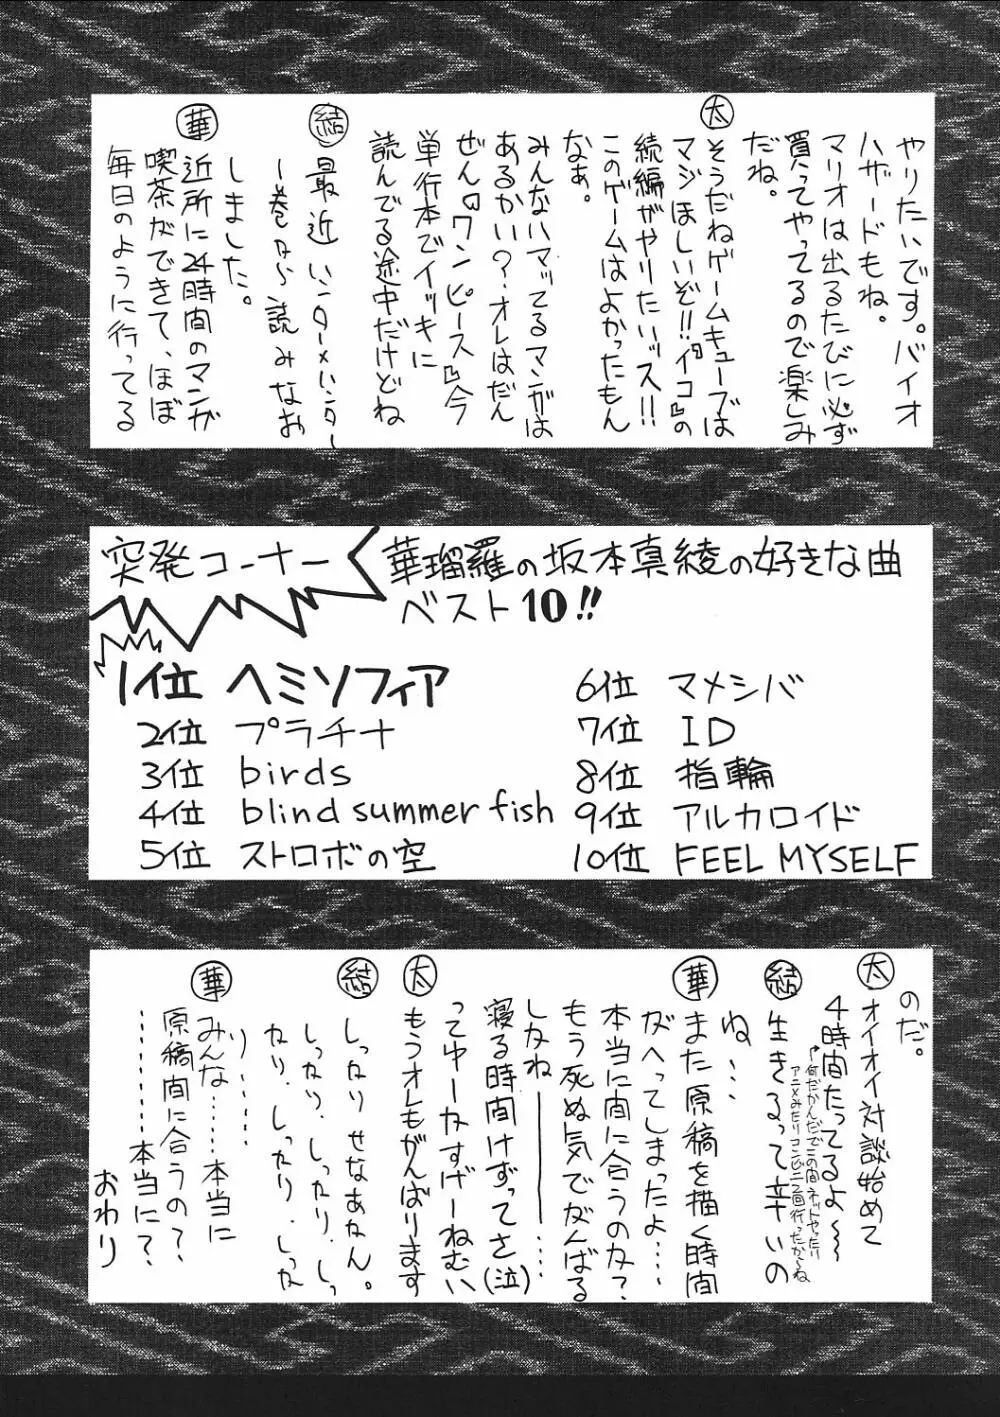 やりたいです。バイオ
ハザードもね。
マリオは出るたびに必ず
買ってやってるので楽しみ
だね。
太 そうだねゲームキューブは
マジほしいぞ!!『イコ』の
続編がやりたいッス!!
このゲームはよかったもん
なぁ。
みんなハマッてるマンガは
あるかい?オレはだん
ぜん『ワンピース』今
単行本でイッキに
読んでる途中だけどね
結 最近ハンターハンター
1巻から読みなお
しました。
華 近所に24時間のマンガ
喫茶ができて、ほぼ
毎日のように行ってる
突発コーナー
華瑠羅の坂本真綾の好きな曲
ベスト10!!
1位 ヘミソフィア
2位 プラチナ
3位 birds
4位 blind summer fish
5位 ストロボの空
6位 マメシバ
7位 ID
8位 指輪
9位 アルカロイド
10位 FEEL MYSELF
のだ。
太 オイオイ対談始めて
4時間たってるよ〜〜
→何だかんだでこの間ネットやったり
アニメみたりコンビニ2回行ったから〜ね
結 生きるって辛いの
ね・・・
華 また原稿を描く時間
がへってしまったよ・・・・
本当に間に合うのか?
もう死ぬ気でがんばる
しかね――――・・・・
寝る時間けずってさ(泣)
ってゆーかすげーねむい
太 もうオレもがんばります
結 しっかりせなあかん。
しっかり.しっかり.しっ
かり.しっかり.しっか
り・・・・・
華 みんな・・・・・本当に
原稿間に合うの?
・・・・・・・・本当に?
おわり